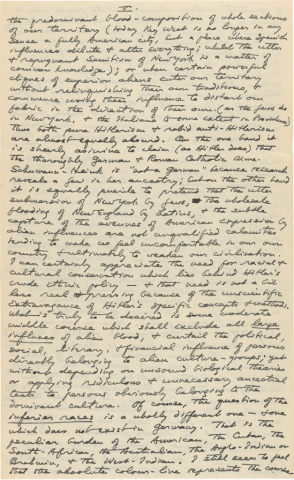 the predominant blood-composition of whole sections
of our territory (today Key West is no longer in any
sense a fully American city, but a place where Spanish
influences dilute & alter everything; whilst the utter
& repugnant Semitism of New York is a matter of
common knowledge); or when certain powerful
cliques of American aliens enter our territory
without relinquishing their own traditions, &
commence working their influence to distort our
fabric in the direction of their own. (as the Jews do
in New York, & the Italians to some extent in Providence)
Thus both pure Hitlerism & rabid anti-Hitlerism
are almost equally absurd. On the one hand it
is sheerly asinine to claim (as Hitler does) that
the thoroughly German & Roman Catholic Mme.
Schumann-Heink is "not a German" because research
reveals a Jew in her ancestry; but on the other hand
it is equally puerile to pretend that the utter
submersion of New York by Jews, the wholesale
flooding of New England by Latins, & the subtle
capture of the avenues of American expression by
alien influences are not unqualified calamities
tending to make us feel uncomfortable in our own
country & ultimately to weaken our civilisation.
I can certainly appreciate the need for racial &
cultural conservation which lies behind Hitler's
crude ethnic policy — & that need is not a bit
less real & pressing because of the unscientific
extravagance of Hitler's specific concepts & methods.
What is truly to be desired is some moderate
middle course which shall exclude all large
influxes of alien blood, & curtail the political,
social, literary, & financial influence of persons
directly belonging to alien culture-groups; yet
without depending on unsound biological theories
or applying ridiculous & unnecessary ancestral
tests to persons obviously belonging to the
dominant culture. Of course, the question of the
inferior races is a wholly different one — & one
which does not exist in Germany. That is the
peculiar burden of the American, the Cuban, the
South-African, the Australian, the Anglo-Indian or
& the West-Indian. I still seem to feel
that the absolute colour-line represents the course